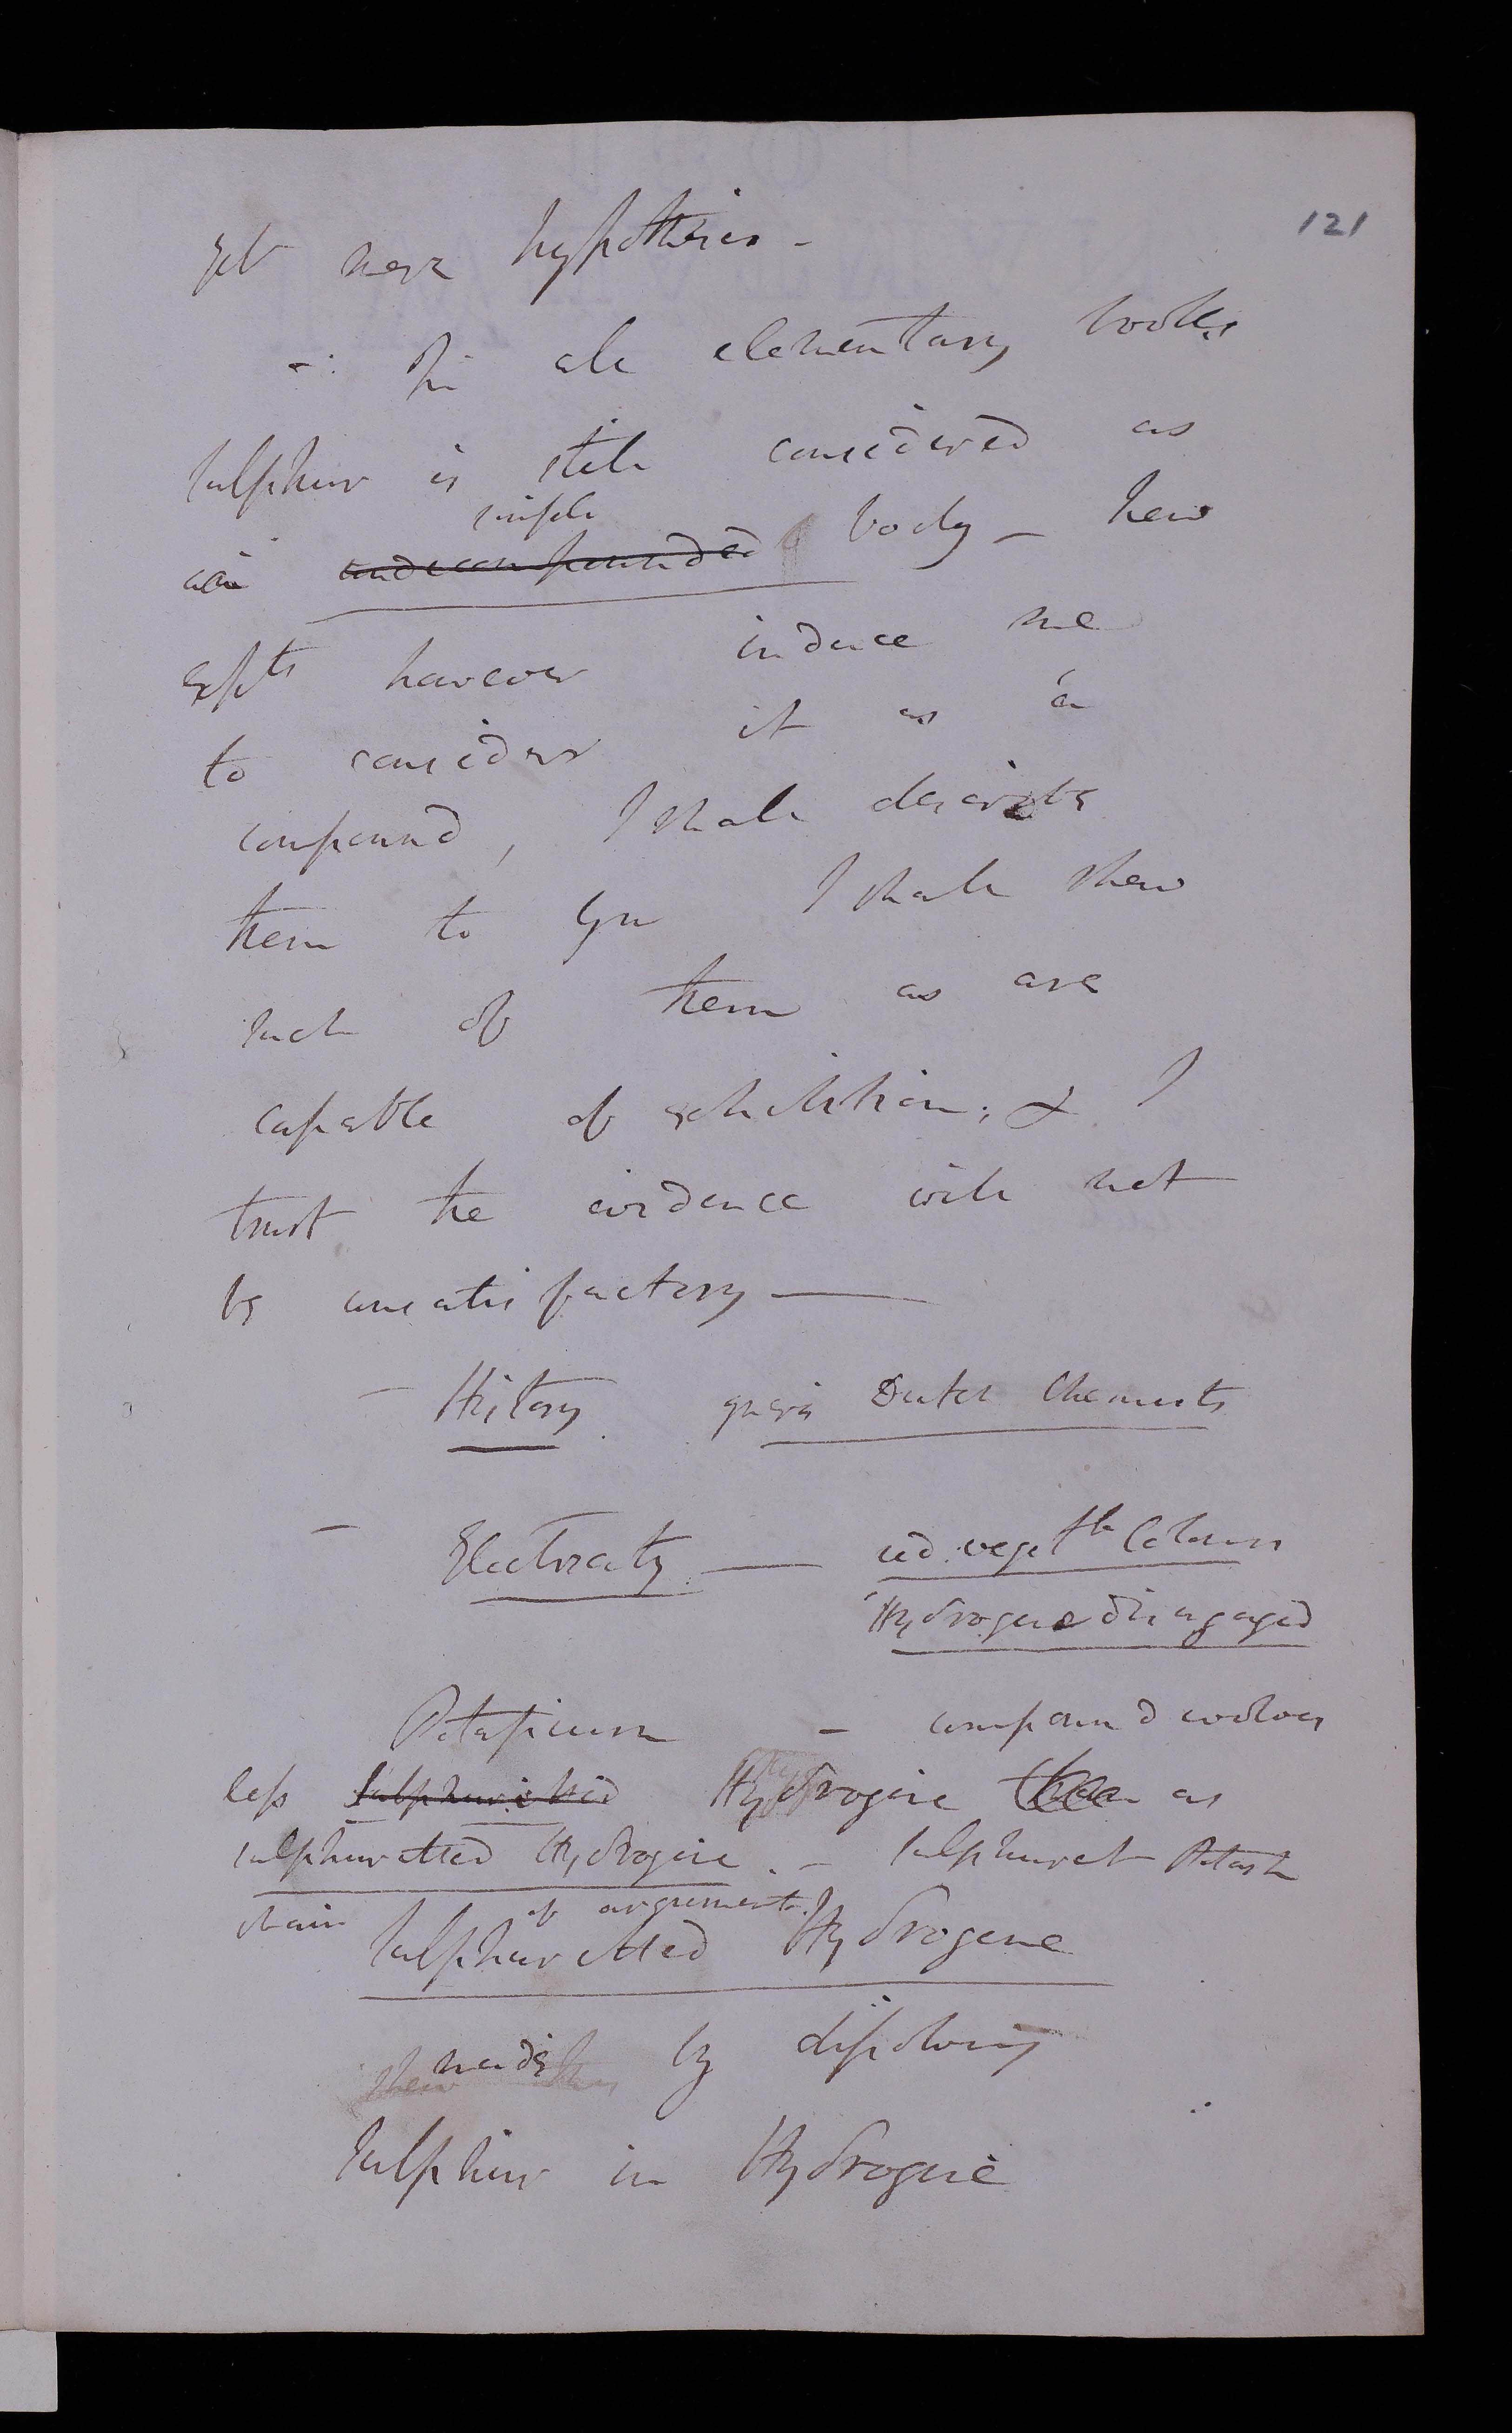 121
yet mere hypothesis -
-: In all elementary books
sulphur is still considered as
simple
an undecompounded body - new
Expts however induce me
to consider it as a
compound, I shall describe
them to you I shall shew
such of them as are
capable of exhibition; & I
trust the evidence will not
be unsatisfactory —
- History. Dutch Chemists
- Electricity. — red vegetble Colours
Hydrogene disengaged
Potassium - compound evolves
less sulphuretted Hydrogene than as
sulphuretted Hydrogene. - sulphuret Potash
chain of argument.
Sulphuretted Hydrogene
made by dissolving
Sulphur in Hydrogene